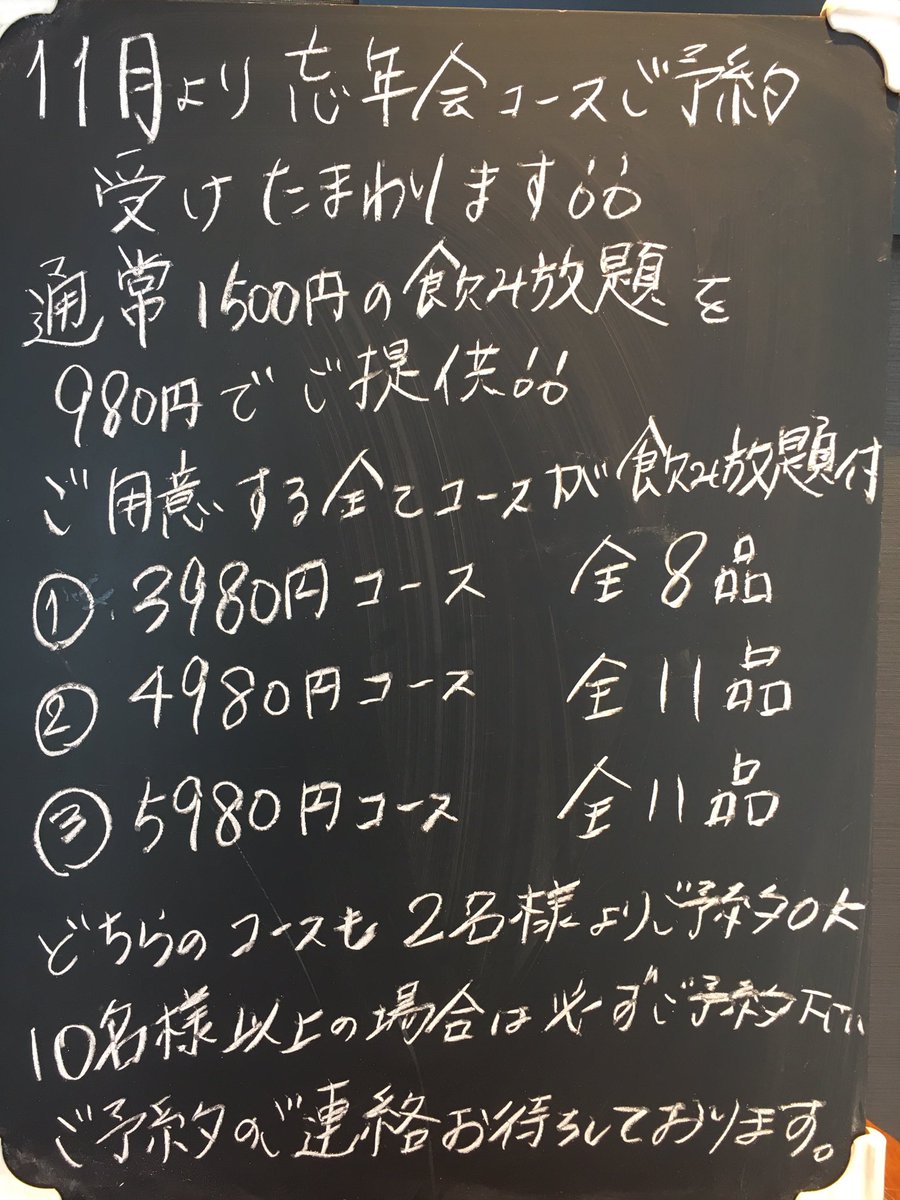 11月より忘年会コースご予約
受けたまわります!!
通常1500円の飲み放題を
980円でご提供!!
ご用意する全てコースが飲み放題付
① 3980円コース 全8品
② 4980円コース 全11品
③ 5980円コース 全11品
どちらのコースも2名様よりご予約OK
10名様以上の場合は必ずご予約下さい
ご予約のご連絡お待ちしております。